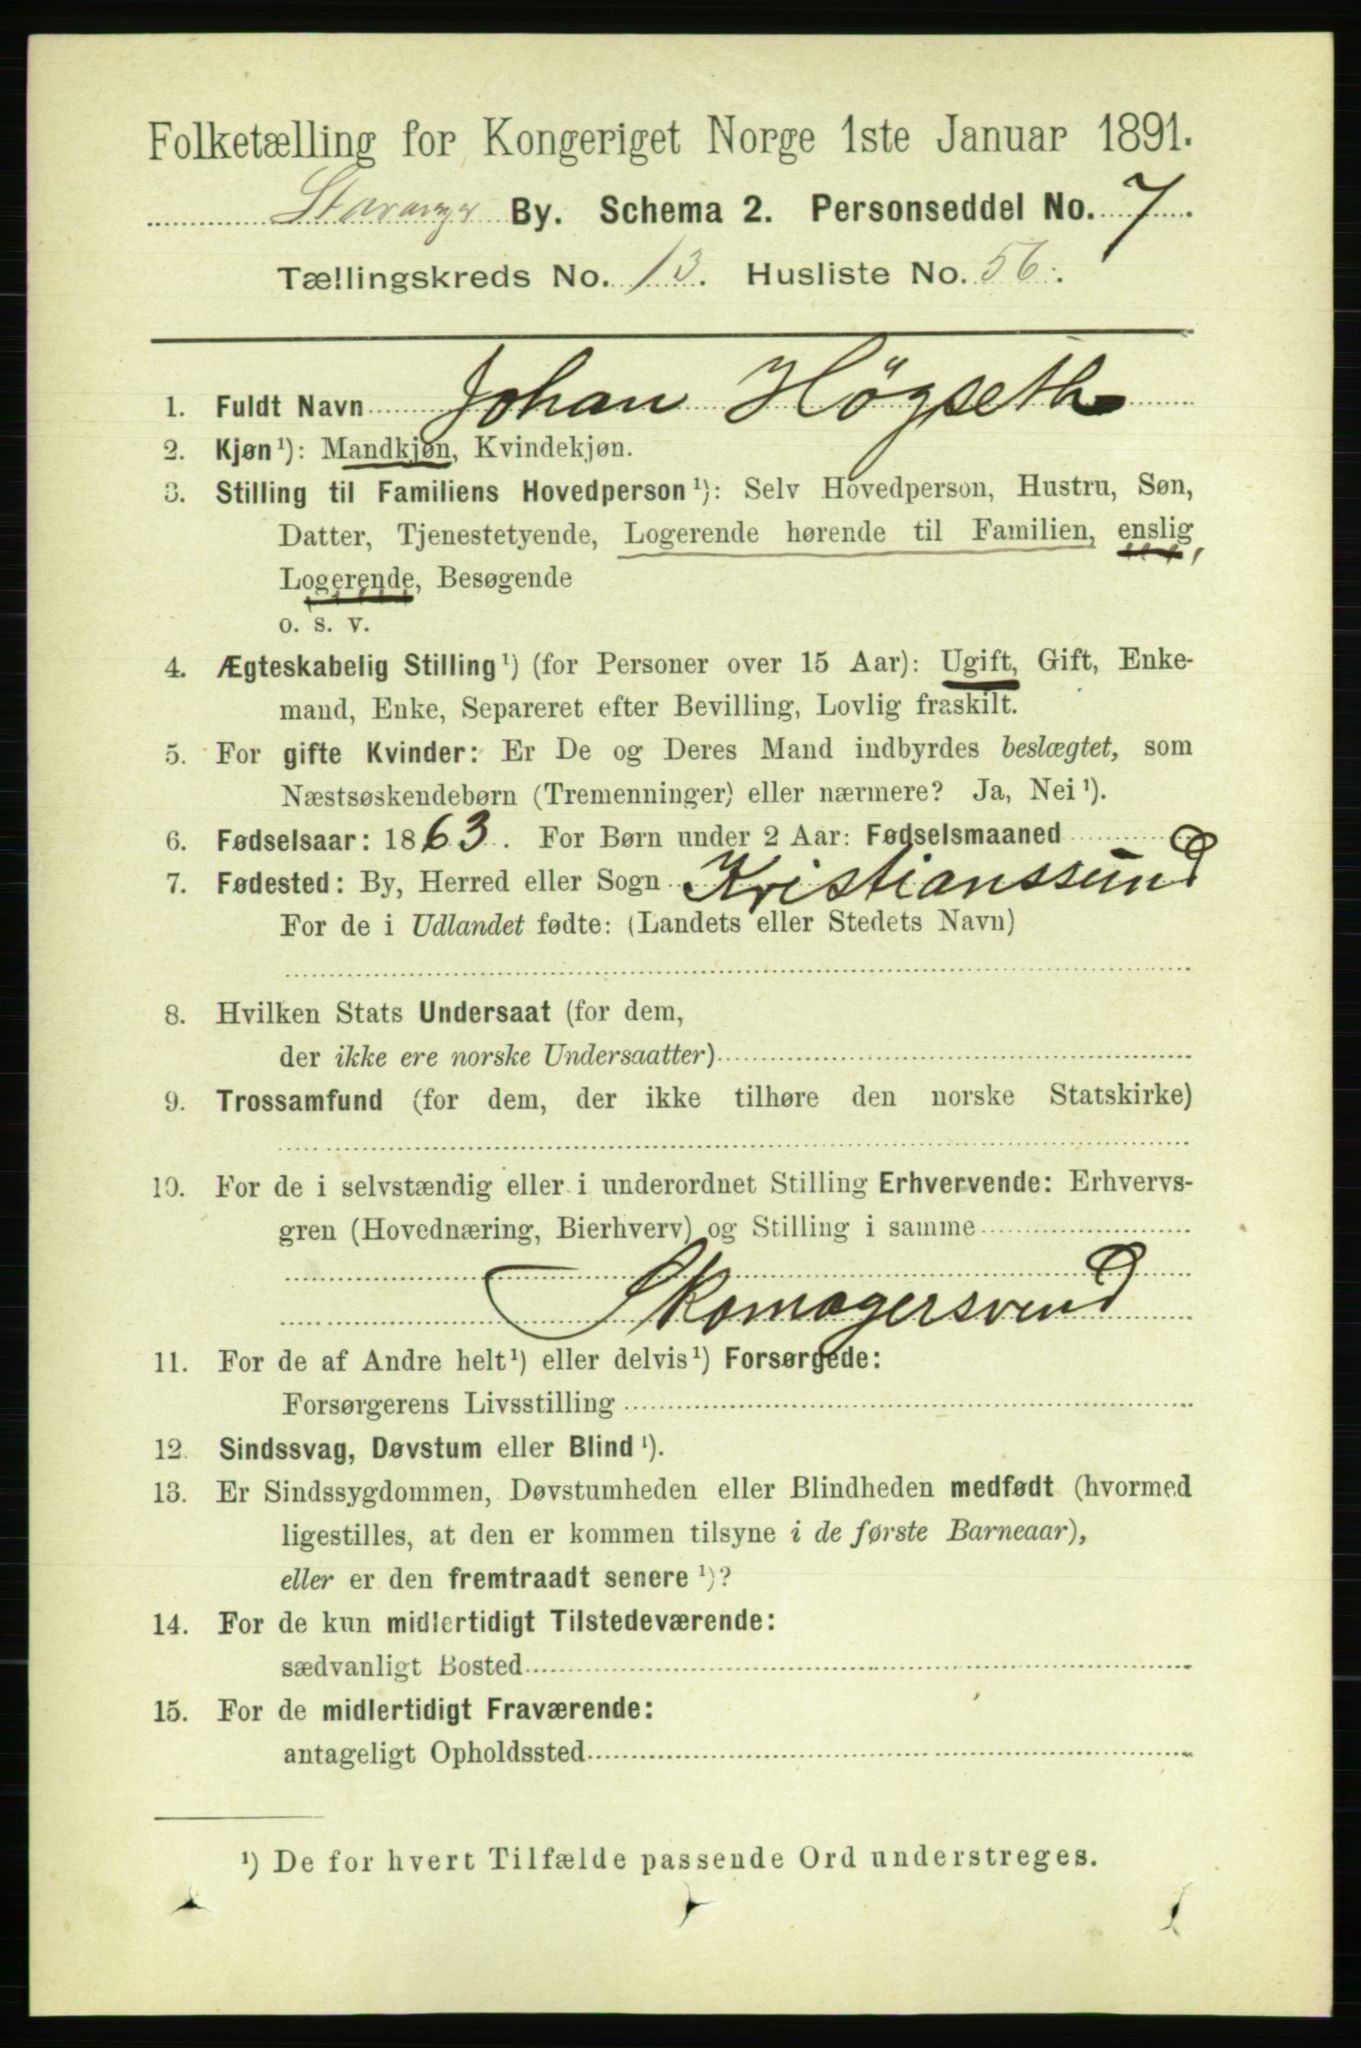 Folketælling for Kongeriget Norge 1ste Januar 1891.
Stavanger By. Schema 2. Personseddel No. 7
Tællingskreds No. 13. Husliste No. 56.
1. Fuldt Navn Johan Högseth
2. Kjøn¹): Mandkjøn, Kvindekjøn.
3. Stilling til Familiens Hovedperson¹): Selv Hovedperson, Hustru, Søn,
Datter, Tjenestetyende, Logerende hørende til Familien, enslig
Logerende, Besøgende
o. s. v.
4. Ægteskabelig Stilling¹) (for Personer over 15 Aar): Ugift, Gift, Enke-
mand, Enke, Separeret efter Bevilling, Lovlig fraskilt.
5. For gifte Kvinder: Er De og Deres Mand indbyrdes beslægtet, som
Næstsøskendebørn (Tremenninger) eller nærmere? Ja, Nei¹).
6. Fødselsaar: 1863. For Børn under 2 Aar: Fødselsmaaned
7. Fødested: By, Herred eller Sogn Kristianssund
For de i Udlandet fødte: (Landets eller Stedets Navn)
8. Hvilken Stats Undersaat (for dem,
der ikke ere norske Undersaatter)
9. Trossamfund (for dem, der ikke tilhøre den norske Statskirke)
10. For de i selvstændig eller i underordnet Stilling Erhvervende: Erhvervs-
gren (Hovednæring, Bierhverv) og Stilling i samme
Skomagersvend
11. For de af Andre helt¹) eller delvis¹) Forsørgede:
Forsørgerens Livsstilling
12. Sindssvag, Døvstum eller Blind¹).
13. Er Sindssygdommen, Døvstumheden eller Blindheden medfødt (hvormed
ligestilles, at den er kommen tilsyne i de første Barneaar),
eller er den fremtraadt senere¹)?
14. For de kun midlertidigt Tilstedeværende:
sædvanligt Bosted
15. For de midlertidigt Fraværende:
antageligt Opholdssted
¹) De for hvert Tilfælde passende Ord understreges.